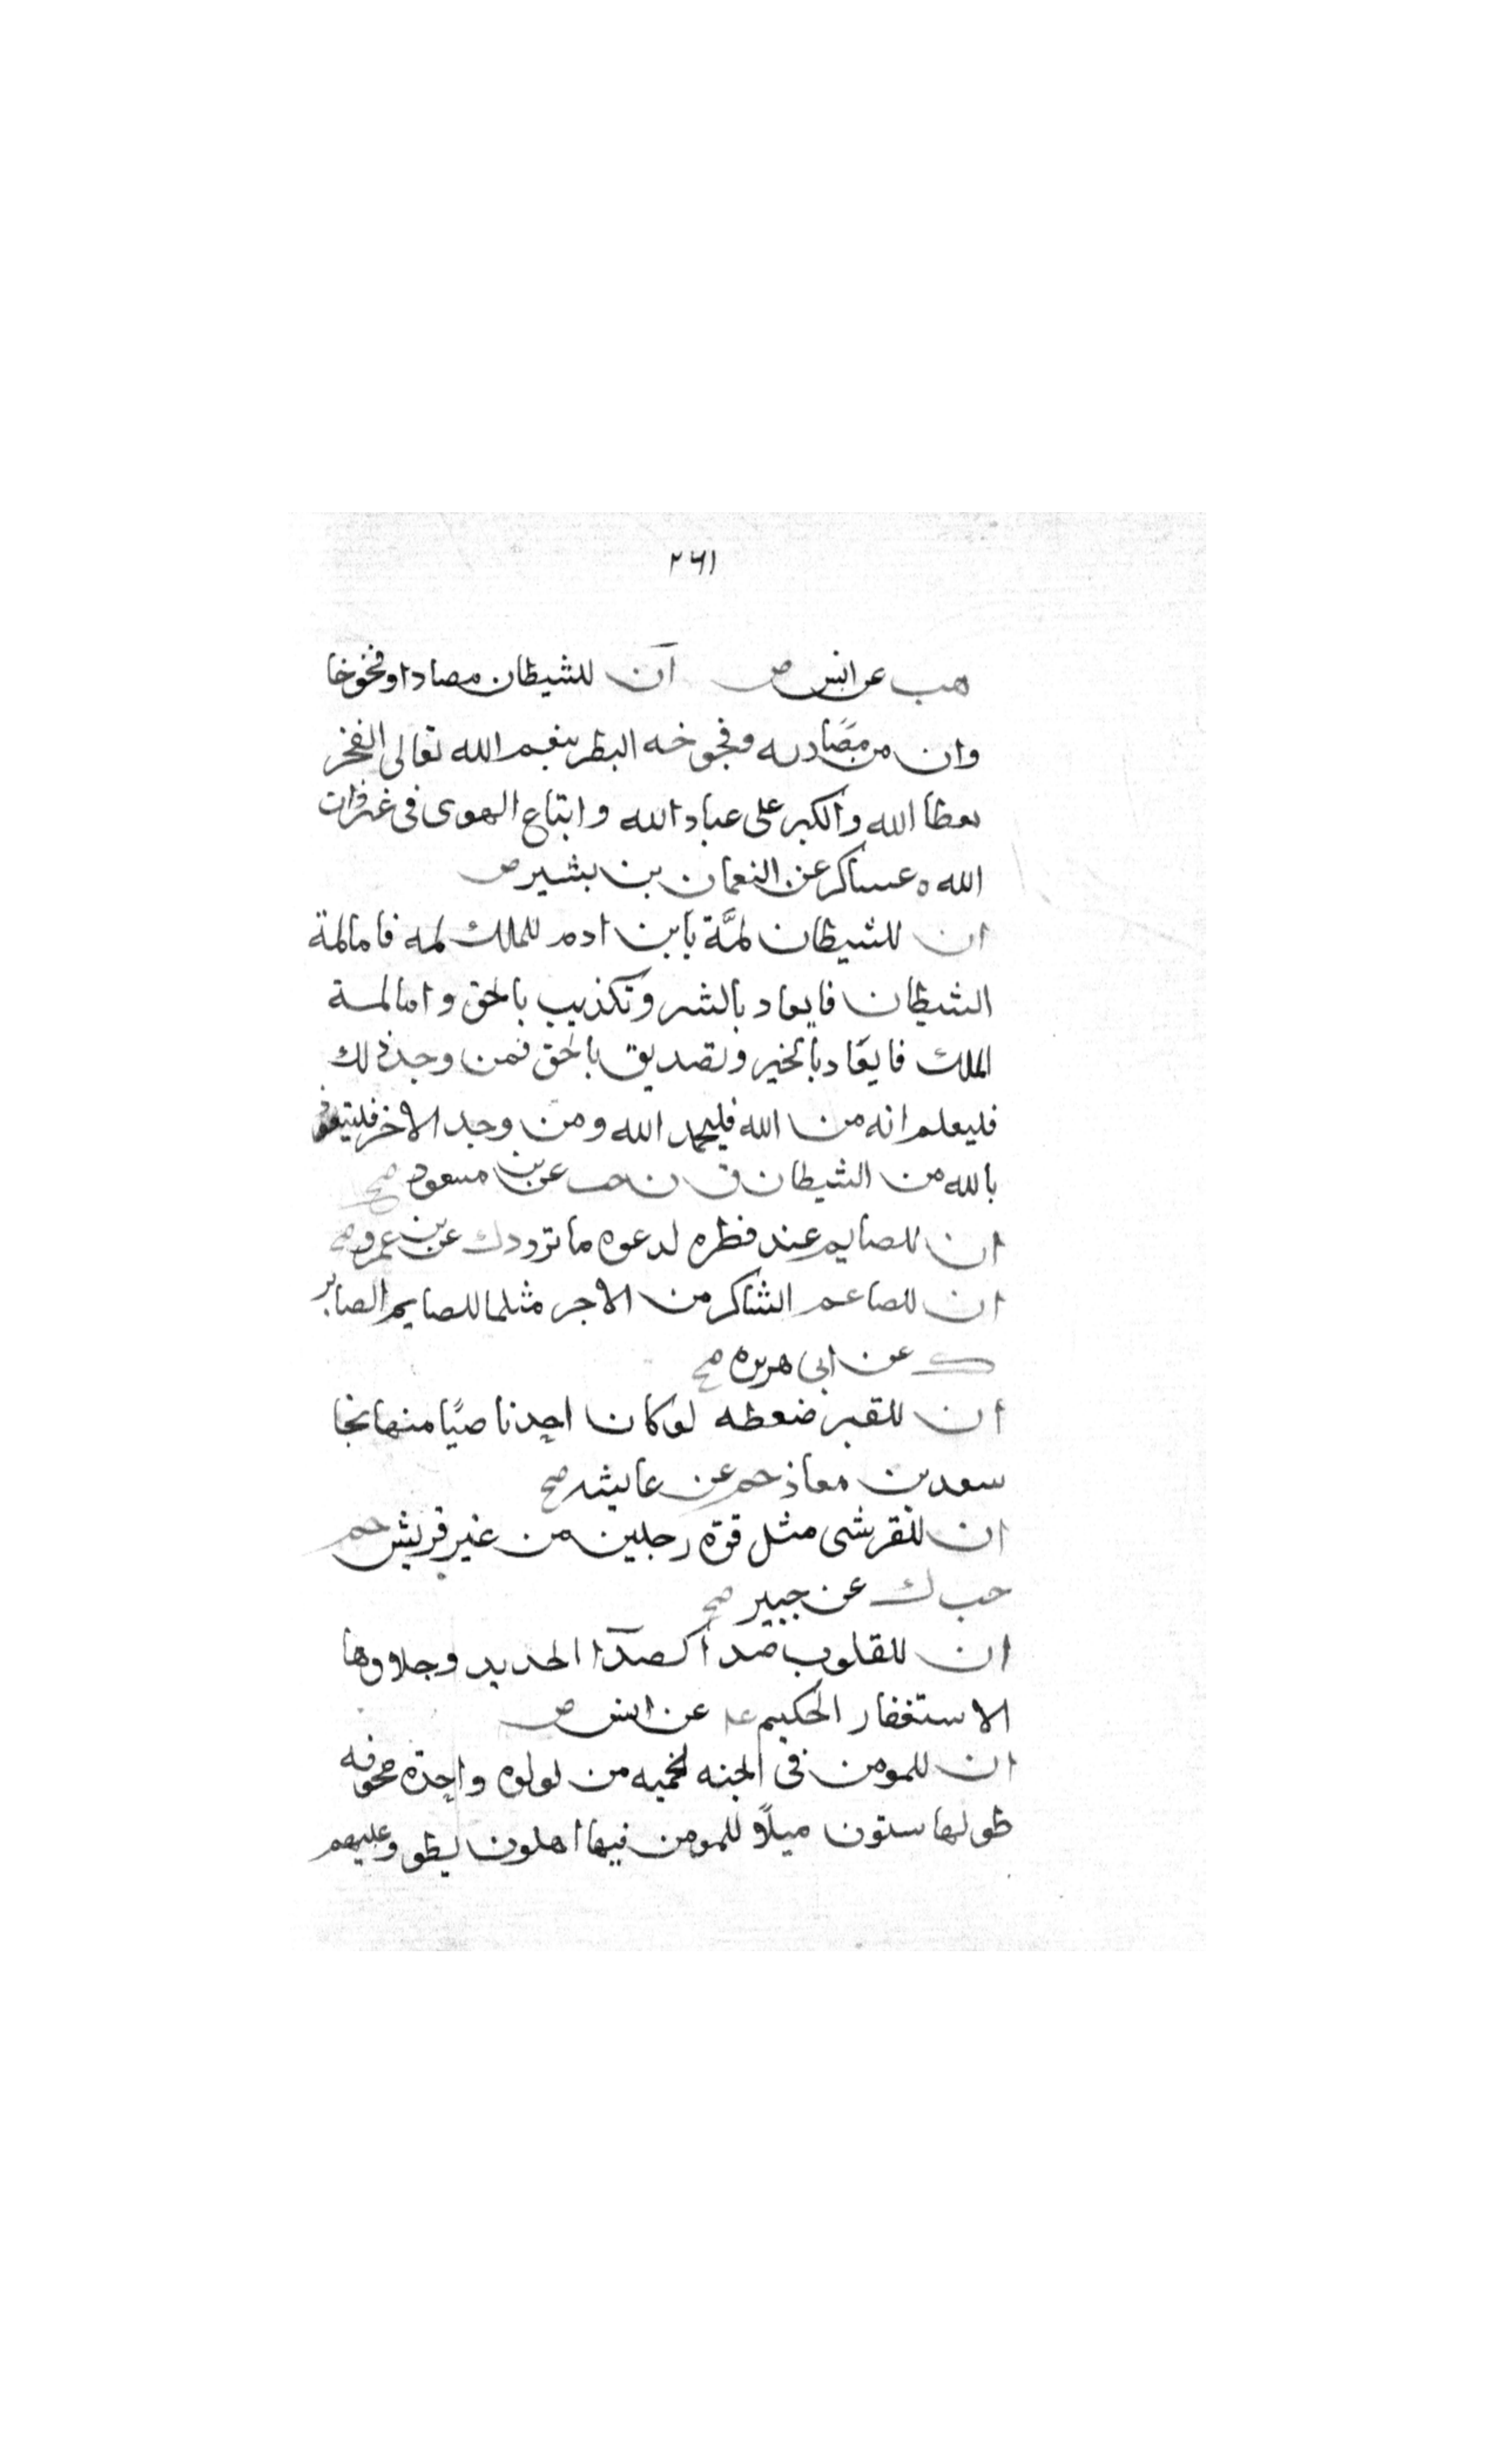 ٢٦١
هب عن انس ض ان للشيطان مصادا وفخوخا
وان من مصادره وفخوخه البطر بنعم الله تعالى الفخر
بعطا الله والكبر على عباد الله وابتاع الهوى فى غير ذات
الله ه عساكر عن النعمان بن بشير ض
ان للشيطان لمَّة بابن ادم للملك لمه فاما لمة
الشيطان فايعاد بالشر وتكذيب بالحق واما لمة
الملك فايعاد بالخير وتصديق بالحق فمن وجد ذلك
فليعلم انه من الله فليحمد الله ومن وجد الاخر فليتعوذ
بالله من الشيطان ت ن حب عن بن مسعود صح
ان للصايم عند فطره لدعوه ما ترد ه ك عن بن عمرو صح
ان للطاعم الشاكر من الاجر مثلما للصايم الصابر
ك عن ابى هريره صح
ان للقبر ضغطه لو كان احدنا جيًا منها نجا
سعد بن معاذ حم عن عايشه صح
ان للقرشى مثل قوة رجلين من غير قريش حم
حب ك عن جبير صح
ان للقلوب صدأ كصدأ الحديد وجلاوها
الاستغفار الحكيم عد عن انس ض
ان للمومن فى الجنه لخميه من لولوه واحدة مجوفه
طولها ستون ميلاً للمومن فيها اهلون يطو وعليهم